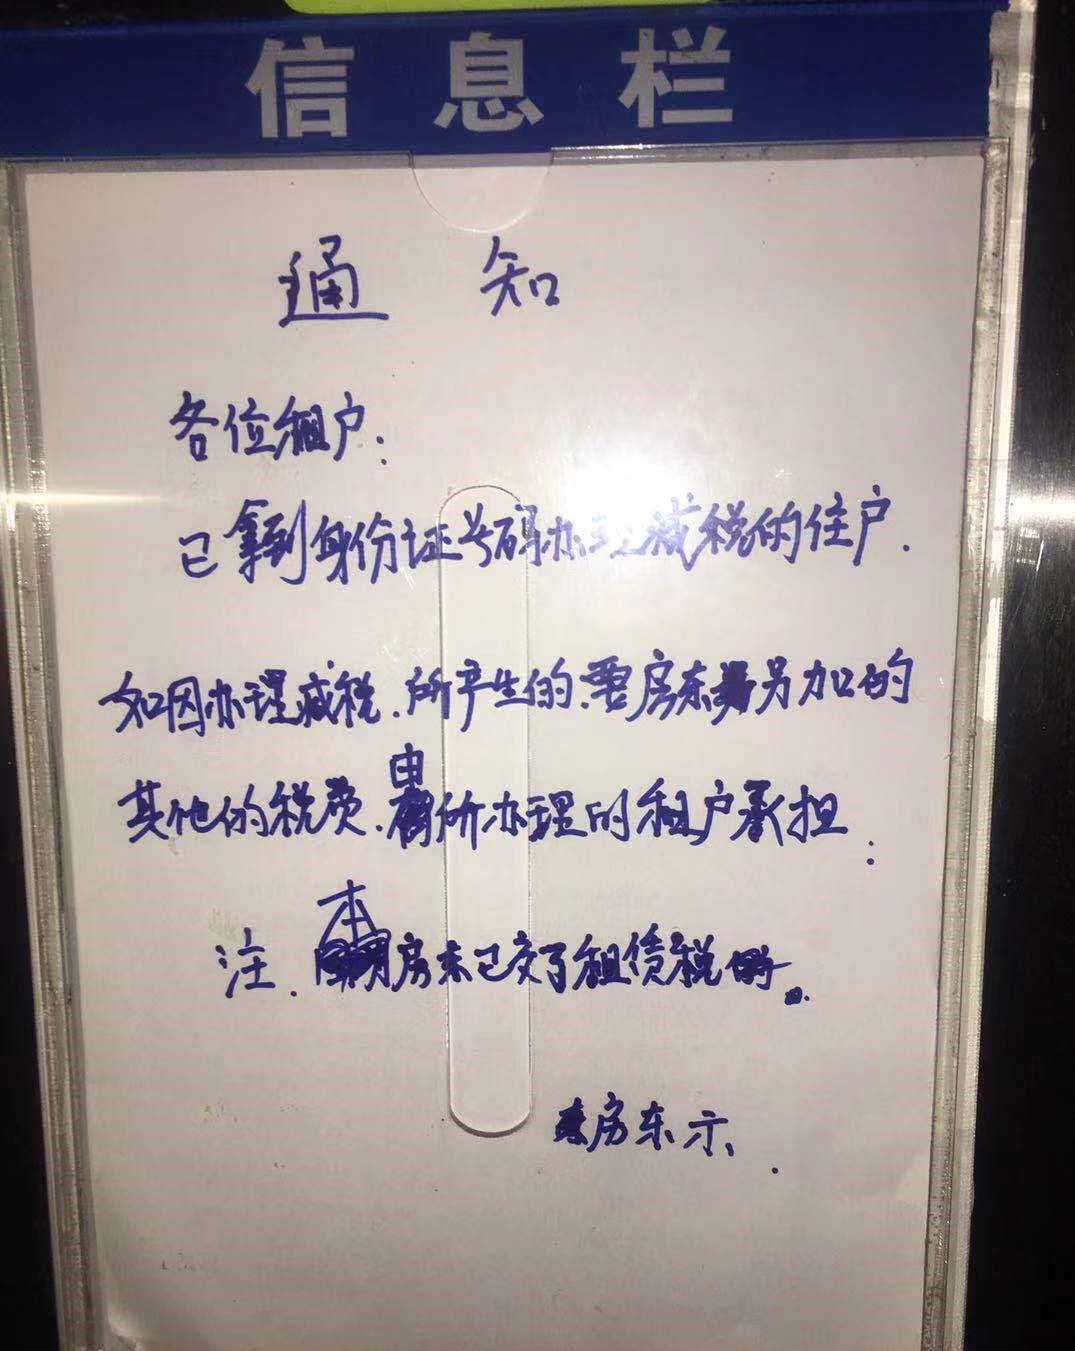 信息栏
通知
各位租户:
已拿到身份证号码办理减税的住户.
如因办理减税.所产生的.要房东另加的
其他的税费.由你办理的租户承担:
注.本房东已交了租赁税
房东示.